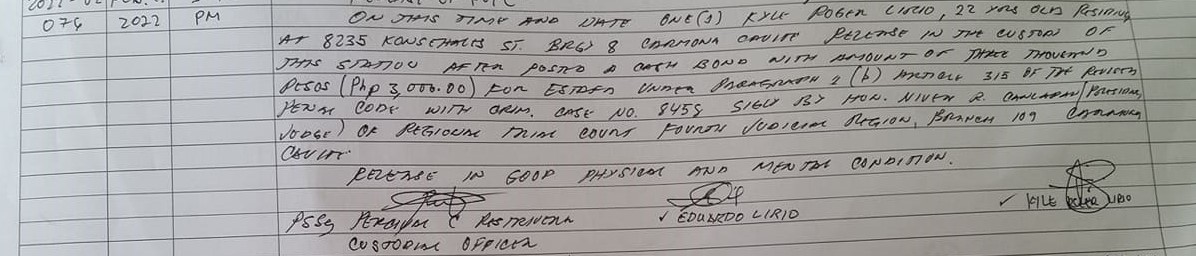 076 2022 PM ON THIS TIME AND DATE ONE(1) KYLE ROGER LIRIO, 22 YRS OLD RESIDING
AT 8235 ST. BRGY 8 CARMONA CAVITE RELEASE IN THE CUSTODY OF
THIS STATION AFTER POSTED A CASH BOND WITH AMOUNT OF THREE THOUSAND
PESOS (Php 3,000.00) FOR ESTAFA UNDER PARAGRAPH 2 (b) ARTICLE 315 OF THE REVISED
PENAL CODE WITH CRIM. CASE NO. 8458 SIGN BY HON. NIVEN R. CANLAPAN (PRESIDING
JUDGE) OF REGIONAL TRIAL COURT FOURTH JUDICIAL REGION, BRANCH 109 CARMONA
CAVITE
RELEASE IN GOOD PHYSICAL AND MENTAL CONDITION.
PSSg C RESTRIVERA ✓ EDUARDO LIRIO ✓ KYLE ROGER LIRIO
CUSTODIAL OFFICER